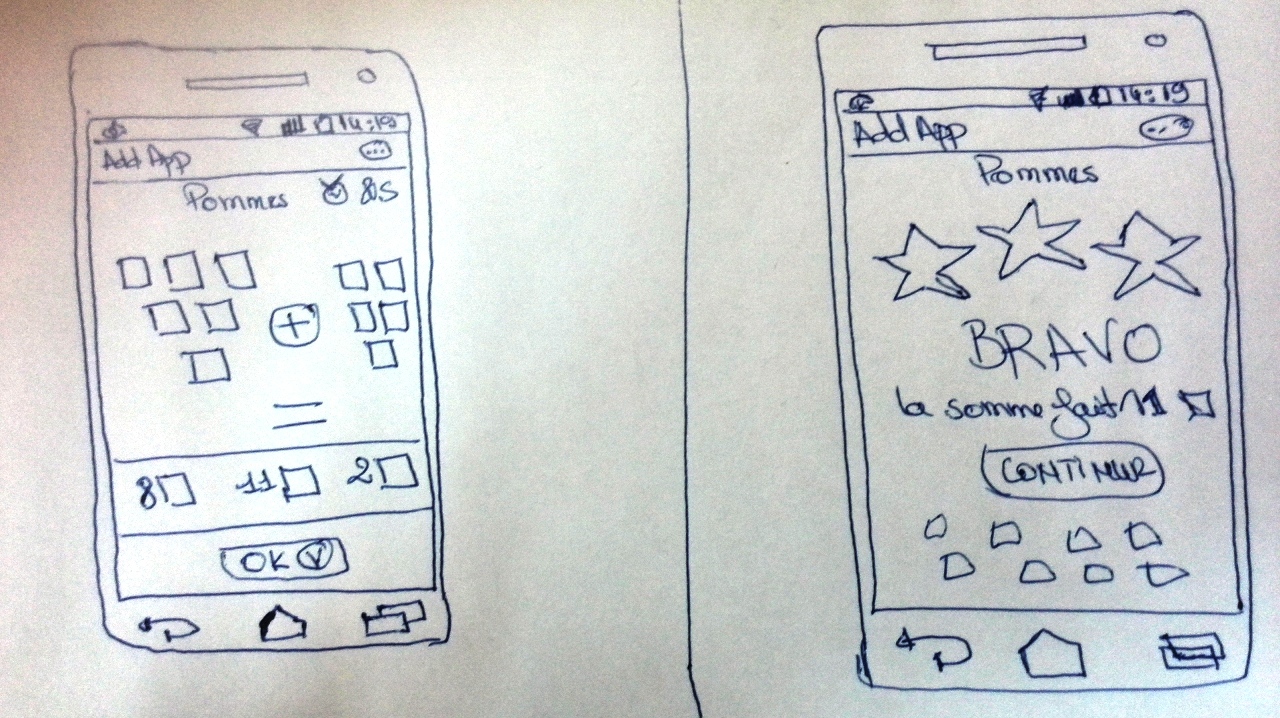 14:19
Add App
Pommes 8s
+
=
8 11 2
OK
14:19
Add App
Pommes
BRAVO
la somme fait 11
CONTINUR